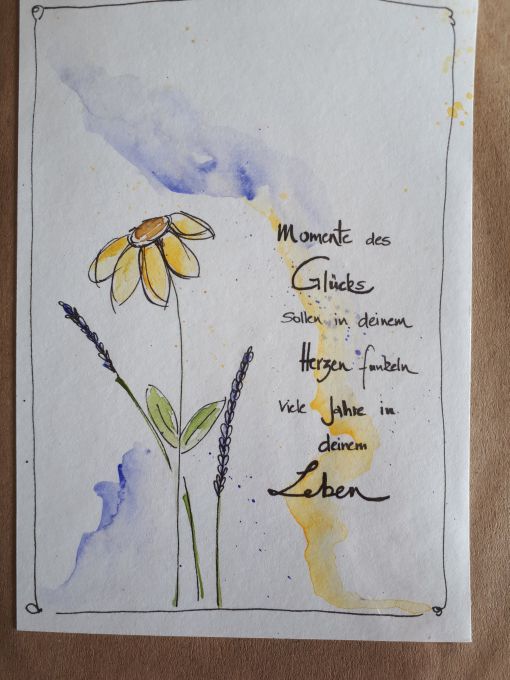 Momente des
Glücks
Sollen in deinem
Herzen funkeln
Viele Jahre in
deinem
Leben